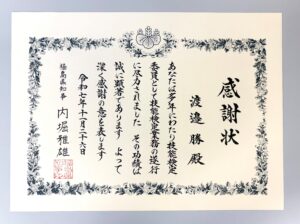 感謝状
渡邉勝殿
あなたは多年にわたり技能検定
委員として技能検定業務の遂行
に尽力されました その功績は
誠に顕著であります よって
深く感謝の意を表します
令和七年十一月二十六日
福島県知事 内堀雅雄